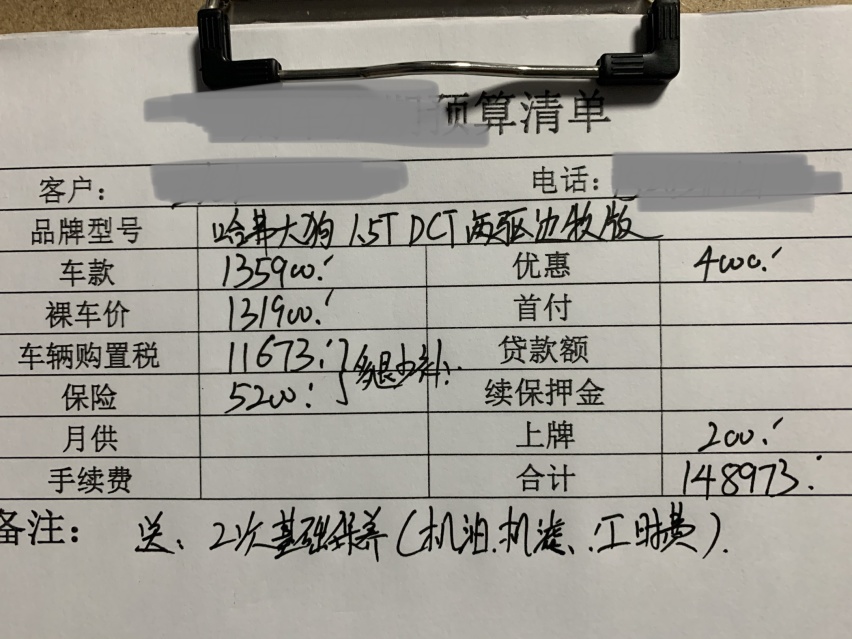 预算清单
客户： 电话：
品牌型号 哈弗大狗 1.5T DCT 两驱边牧版
车款 135900. 优惠 4000.
裸车价 131900. 首付
车辆购置税 11673. 贷款额
多退少补.
保险 5200. 续保押金
月供 上牌 200.
手续费 合计 148973.
备注： 送、2次基础保养（机油.机滤、工时费）.